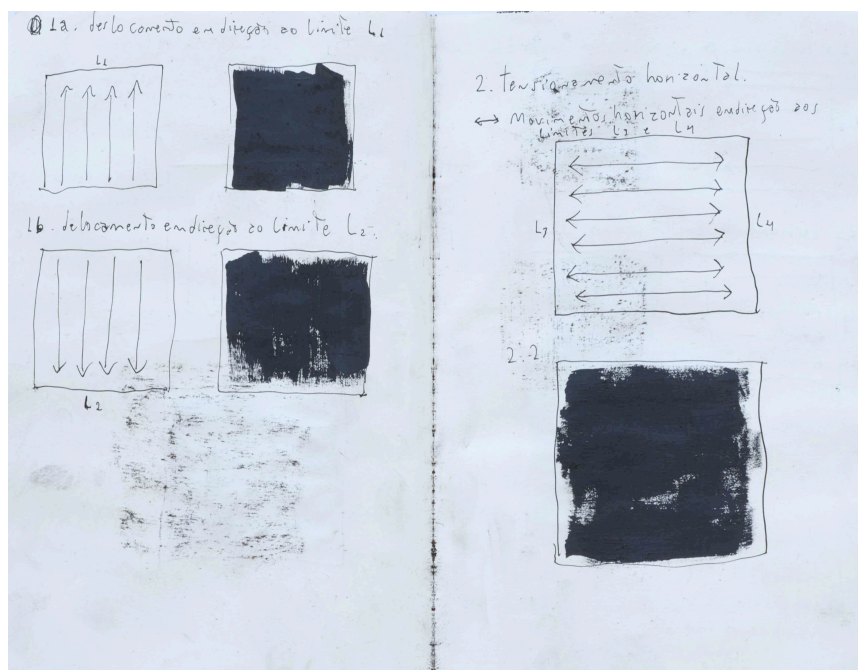 1a. deslocamento em direção ao limite L1
L1
1b. delocamento em direção ao limite L2.
L2
2. tensionamento horizontal.
↔ Movimentos horizontais em direção aos
limites L3 e L4
L3
L4
2.2